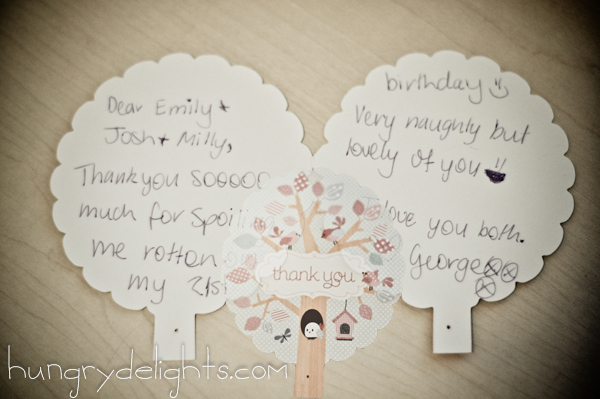 Dear Emily +
Josh + Milly,
Thankyou SOOOOO
much for Spoili
me rotten
my 21st
birthday
Very naughty but
lovely of you
love you both.
George
thank you
hungrydelights.com